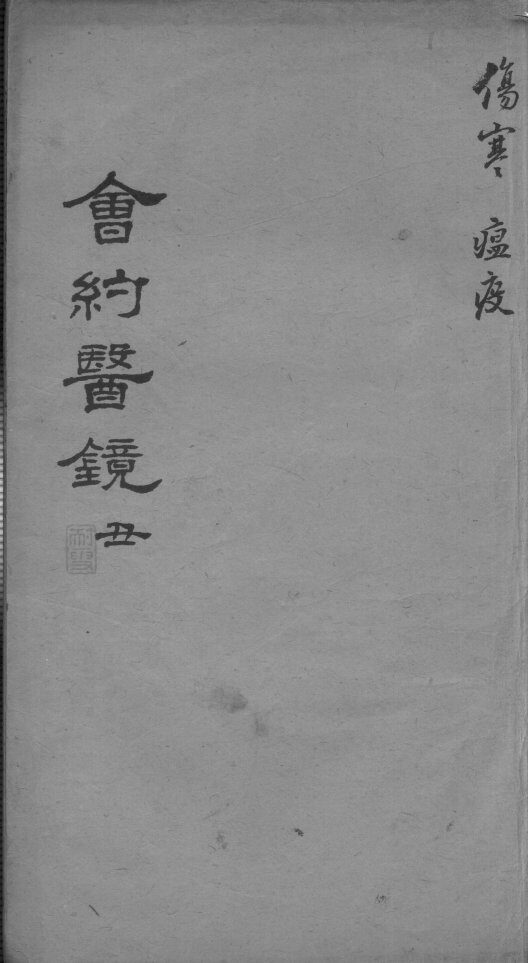 傷寒 瘟疫
會約醫鏡 丑